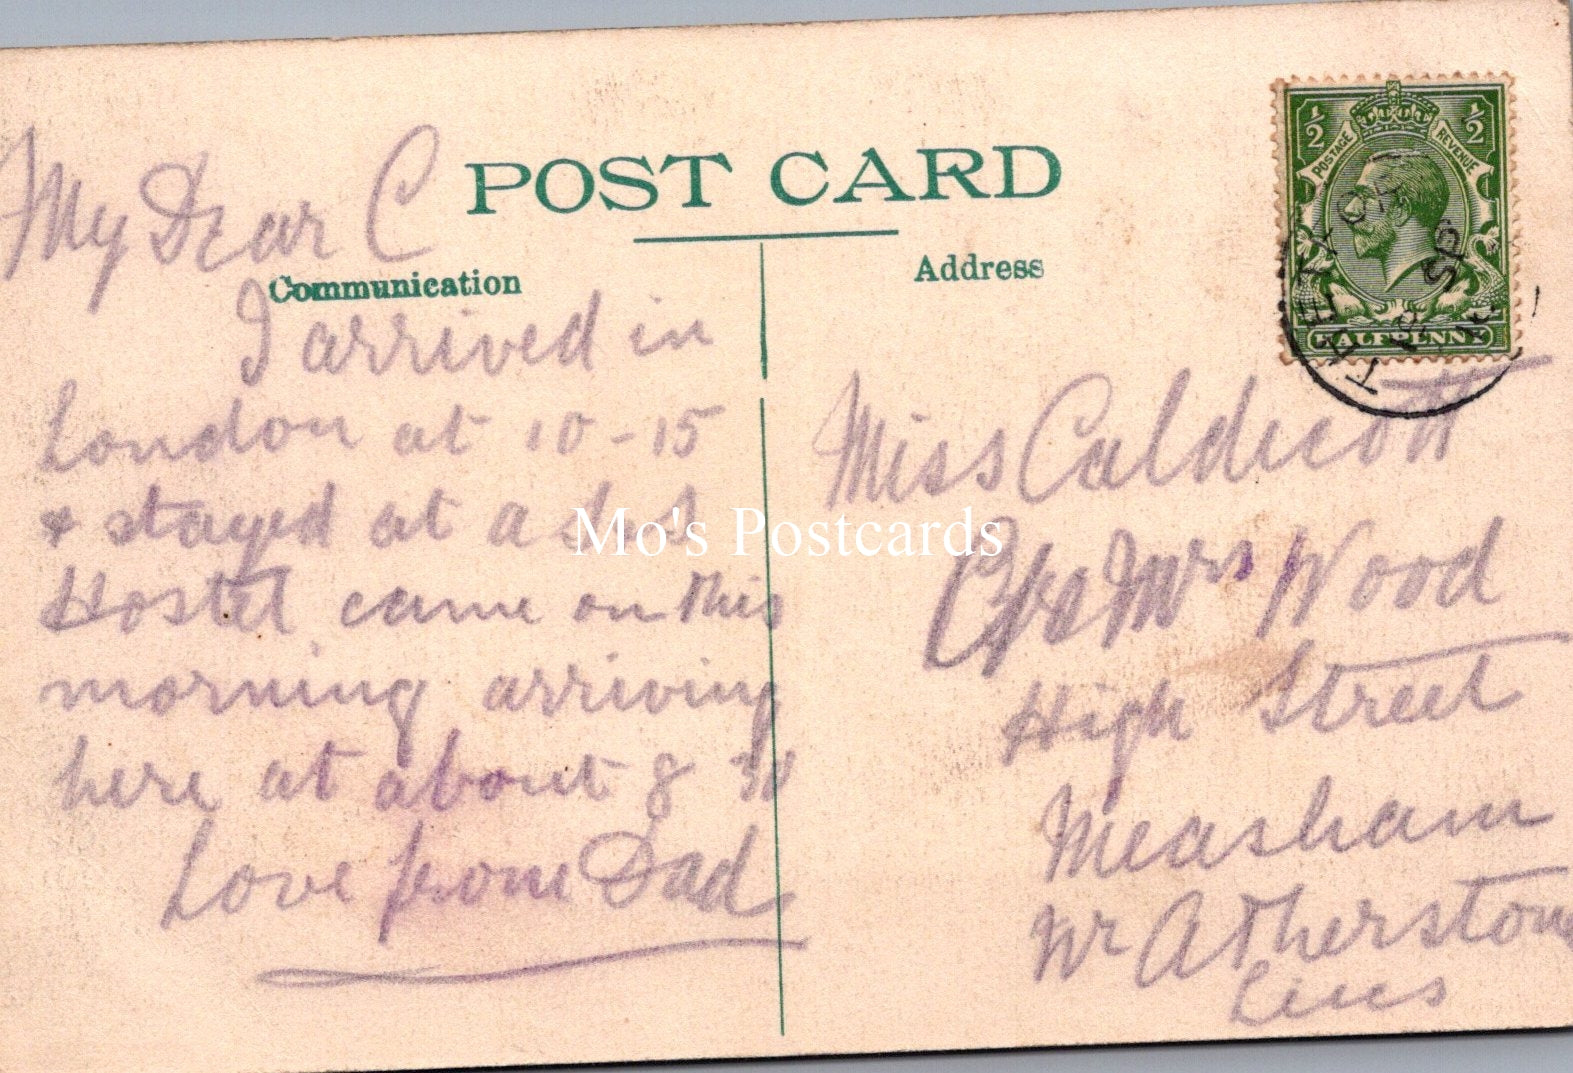 POST CARD
Communication
Address
My Dear C
I arrived in
London at 10-15
& stayed at a
Hostel came on this
morning arriving
here at about 8 30
Love from Dad
Miss Caldicott
C/o Mrs Wood
High Street
Measham
Nr Atherstone
Leics
1/2
1/2
POSTAGE
REVENUE
HALFPENNY
THETFORD
Mo's Postcards